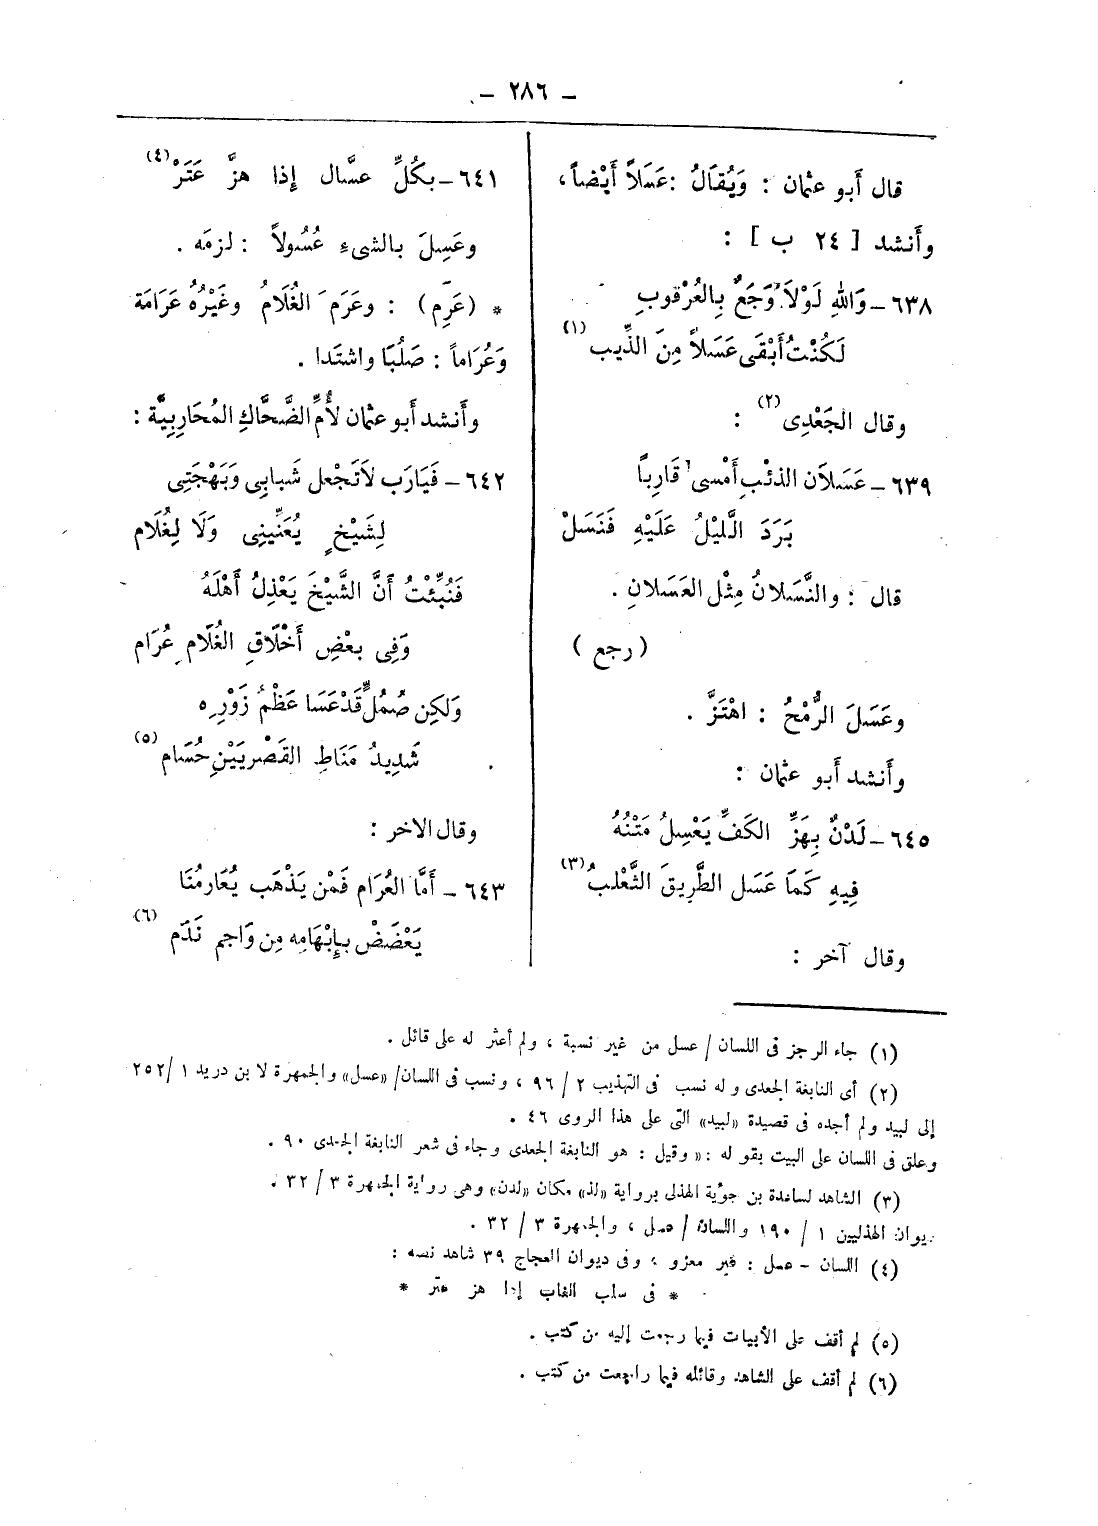 – ٢٨٦ –
قال أَبو عثمان : وَيُقَالُ : عَسَلاً أَيْضاً ،
وأَنشد [ ٢٤ ب ] :
٦٣٨ – وَاللهِ لَوْلَا وَجَعٌ بِالعُرْقوبِ
لَكُنْتُ أَبْقَى عَسَلاً مِنَ الذِّيبِ (١)
وقال الجَعْدِى (٢) :
٦٣٩ – عَسَلاَن الذئْبِ أَمْسى قَارِباً
بَرَدَ الَّليْلُ عَلَيْهِ فَنَسَلْ
قال : والنَّسَلانُ مِثْل العَسَلانِ .
( رجع )
وعَسَلَ الرُّمْحُ : اهْتَزَّ .
وأَنشد أَبو عثمان :
٦٤٥ – لَدْنٌ بِهَزِّ الكَفِّ يَعْسِلُ مَتْنُهُ
فِيهِ كَمَا عَسَل الطَّرِيقَ الثَّعْلبُ (٣)
وقال آخر :
٦٤١ – بكُلِّ عسَّال إِذا هزَّ عَتَرْ (٤)
وعَسِلَ بالشىءِ عُسُولاً : لزمَه .
* (عَرِم) : وعَرَمَ الغُلَامُ وغَيْرُهُ عَرَامَة
وَعُرَاماً : صَلُبَا واشتَدا .
وأَنشد أَبو عثمان لأُمِّ الضَّحَّاكِ المُحَارِبِيَّة :
٦٤٢ – فَيَارَب لاَتَجْعل شَبابِى وَبَهْجَتِى
لِشَيْخٍ يُعَنِّينِى وَلَا لِغُلَام
فَنُبِّئْتُ أَنَّ الشَّيْخَ يَعْذِلُ أَهْلَهُ
وَفِى بعْضِ أَخْلَاقِ الغُلَام عُرَام
وَلكِن صُمُلٍّ قَدْعَسَا عَظْمُ زَوْرِه
شَدِيدُ مَنَاطِ القَصْرِيَيْنِ حُسَام (٥)
وقال الاخر :
٦٤٣ – أَمَّا العُرَام فَمْن يَذْهَب يُعَارمُنَا
يَعْضَضْ بإِبْهَامِه مِن وَاجم نَدَم (٦)
(١) جاء الرجز فى اللسان / عسل من غير نسبة ، ولم أعثر له على قائل .
(٢) أى النابغة الجعدى وله نسب فى التهذيب ٢ / ٩٦ ، ونسب فى اللسان/ «عسل» والجمهرة لا بن دريد ١ / ٢٥٢
إلى لبيد ولم أجده فى قصيدة «لبيد» التى على هذا الروى ٤٦ .
وعلق فى اللسان على البيت بقو له : « وقيل : هو النابغة الجعدى وجاء فى شعر النابغة الجعدى ٩٠ .
(٣) الشاهد لساعدة بن جؤية الهذلى برواية «لذ» مكان «لدن» وهى رواية الجمهرة ٣ / ٣٢ .
ديوان الهذليين ١ / ١٩٠ واللسان / عسل ، والجمهرة ٣ / ٣٢ .
(٤) اللسان – عسل : غير معزو ، وفى ديوان العجاج ٣٩ شاهد نصه :
* فى سلب الغاب إذا هز عتر *
(٥) لم أقف على الأبيات فيما رجعت إليه من كتب .
(٦) لم أقف على الشاهد وقائله فيما راجعت من كتب .